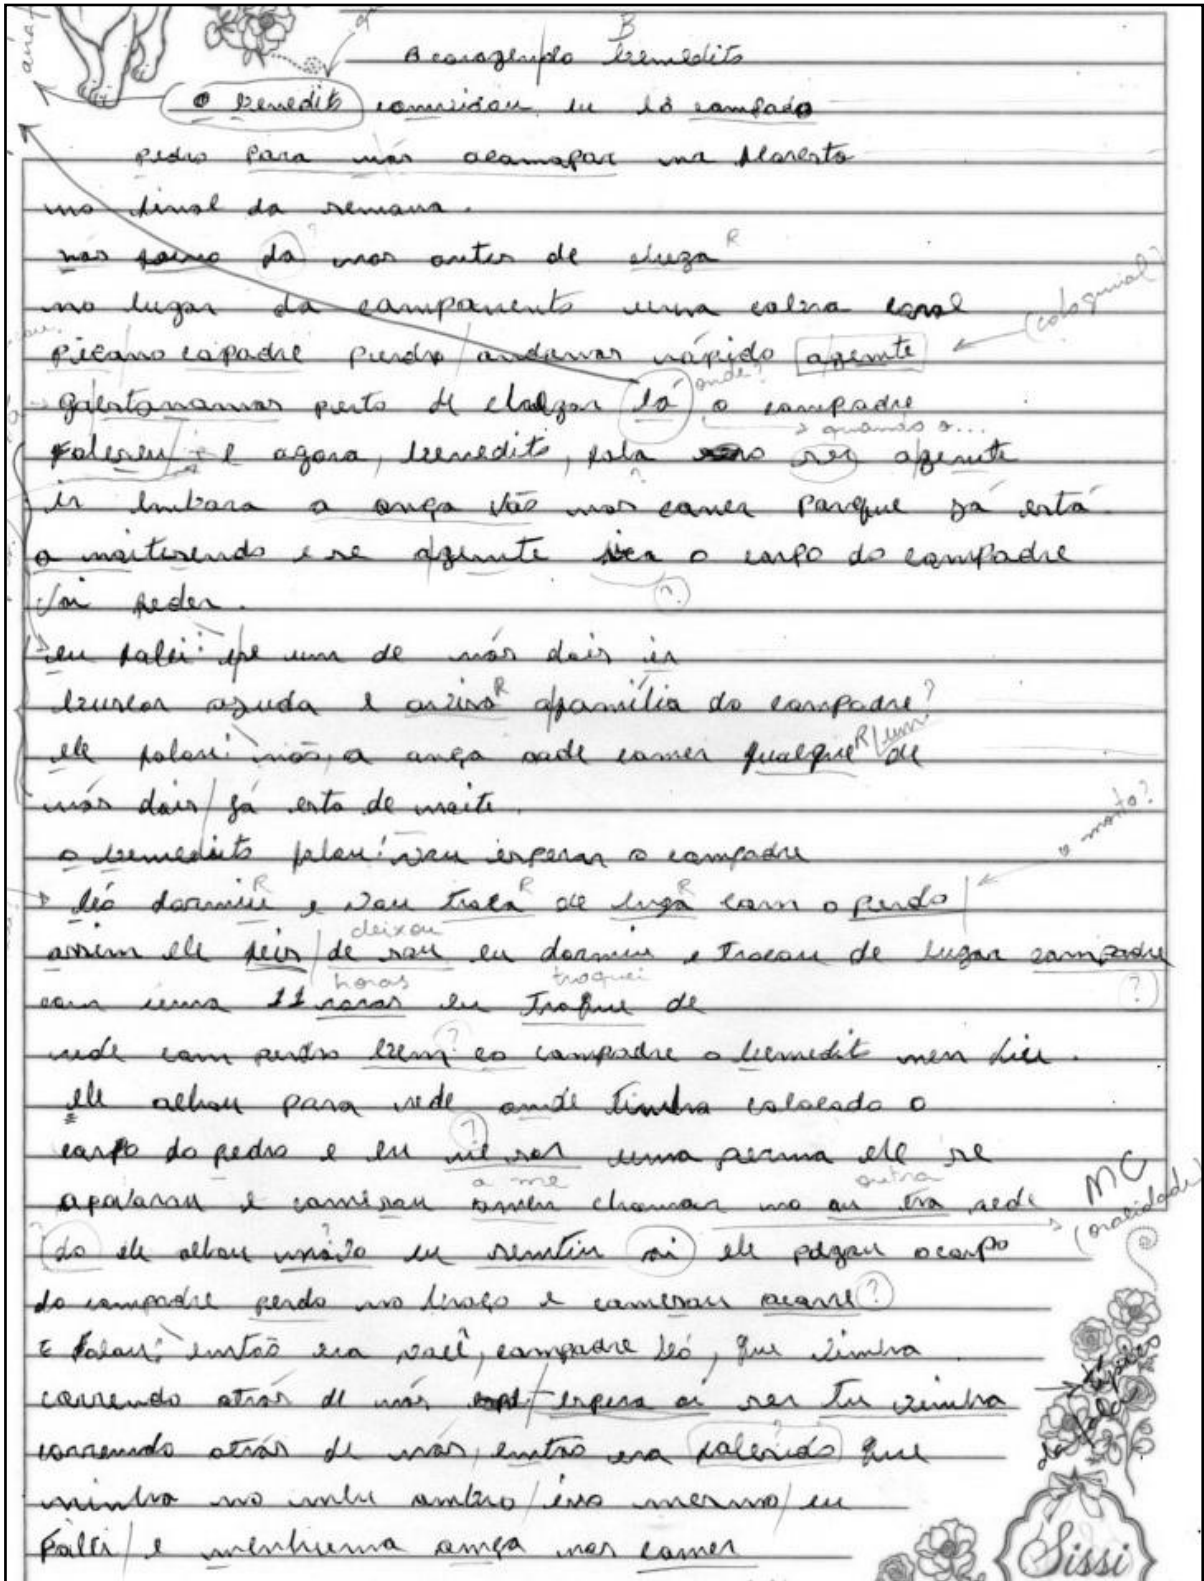 A coragem do benedito
O benedito convidou eu ló compado
pedro para nós acamapar na floresta
no final da semana.
nós saimo da nos antes de chega
no lugar da campamento uma cobra coral
picano copadre perdro andamos rápido agente
gaestanamos perto de chegar lá o compadre
faleseu e agora, benedito, fala ser agente
ir embora a onça vão nos comer porque já está
a noitesendo e se agente o corpo do compadre
vai feder.
eu falei: um de nós dois ir
buscar ajuda e aviso afamília do compadre?
ele falou: não, a onça pode comer qualque de
nós dois já esta de noite.
o benedito falou: vou esperar o compadre
léo dormiu e vou troca de luga com o perdo
assim ele feis de sou eu dormiu e trocou de lugar compadre
com uma 11 roras eu troque de
rede com perdro bem co compadre o benedit men diu.
ele olhou para rede onde tinha colocado o
corpo do pedro e eu uma perna ele se
apavarou e comesou omen chamar no ou tra rede
do ele olhou não eu sentiu ai ele pegou ocorpo
do compadre perdo no braço e comesou acorre
E falou: então era você, compadre léo, que vinha
correndo atrás de nós espera ai ser tu vinha
correndo atrás de nós, então era falesido que
minha no meu ombro isso mesmo eu
falei e nenhuma onça nos comer
B
R
(coloquial?)
onde?
quando o...
?
R
?
R
um
morto?
R
R
R
deixou
horas
troquei
?
?
?
a me
outra
MC
(oralidade)
?
?
Sissi